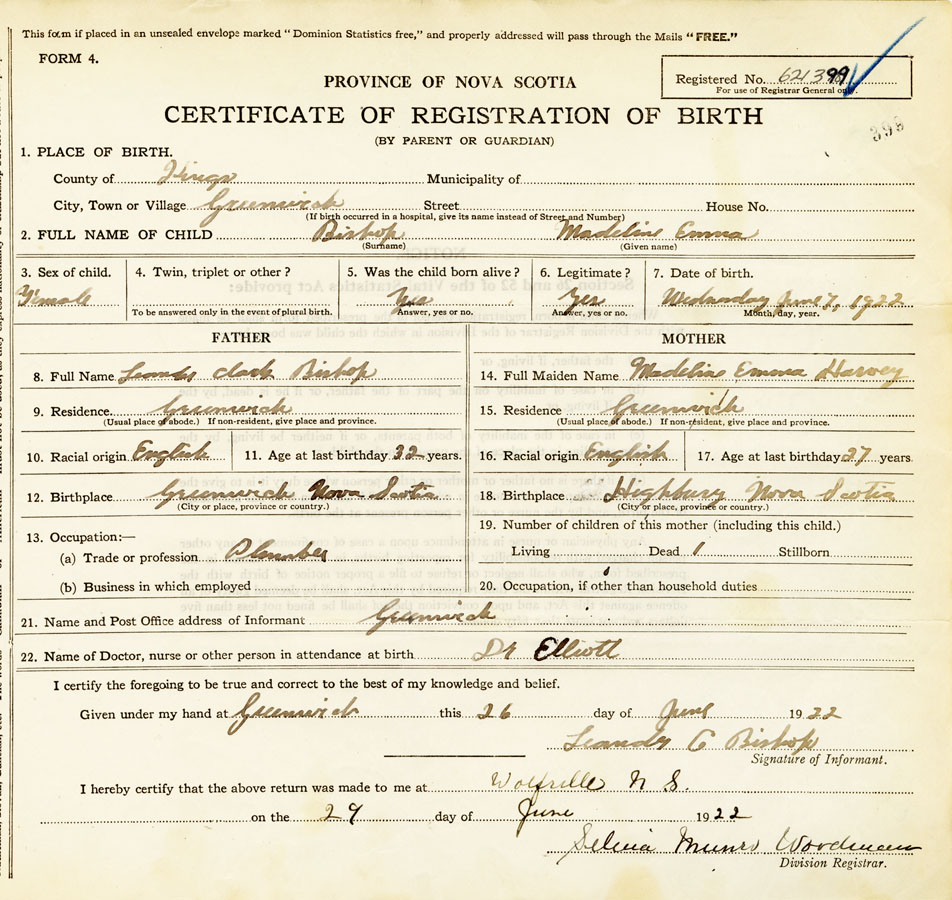 This form if placed in an unsealed envelope marked "Dominion Statistics free," and properly addressed will pass through the Mails "FREE."
FORM 4.
PROVINCE OF NOVA SCOTIA
Registered No. 621399
For use of Registrar General only.
CERTIFICATE OF REGISTRATION OF BIRTH
398
(BY PARENT OR GUARDIAN)
1. PLACE OF BIRTH.
County of Kings Municipality of
City, Town or Village Greenwich Street House No.
(If birth occurred in a hospital, give its name instead of Street and Number)
2. FULL NAME OF CHILD Bishop Madeline Emma
(Surname) (Given name)
3. Sex of child. 4. Twin, triplet or other? 5. Was the child born alive? 6. Legitimate? 7. Date of birth.
Female Yes Yes Wednesday June 7, 1922
To be answered only in the event of plural birth. Answer, yes or no. Answer, yes or no. Month, day, year.
FATHER MOTHER
8. Full Name Leander Clark Bishop 14. Full Maiden Name Madeline Emma Harvey
9. Residence. Greenwich 15. Residence Greenwich
(Usual place of abode.) If non-resident, give place and province. (Usual place of abode.) If non-resident, give place and province.
10. Racial origin English 11. Age at last birthday 32 years. 16. Racial origin English 17. Age at last birthday 27 years
12. Birthplace Greenwich Nova Scotia 18. Birthplace Highbury Nova Scotia
(City or place, province or country.) (City or place, province or country.)
13. Occupation:— 19. Number of children of this mother (including this child.)
(a) Trade or profession Plumber Living Dead 1 Stillborn
(b) Business in which employed 20. Occupation, if other than household duties
21. Name and Post Office address of Informant Greenwich
22. Name of Doctor, nurse or other person in attendance at birth Dr Elliott
I certify the foregoing to be true and correct to the best of my knowledge and belief.
Given under my hand at Greenwich this 26 day of June 1922
Leander C Bishop
Signature of Informant.
I hereby certify that the above return was made to me at Wolfville N S.
on the 29 day of June 1922
Selina Munro Woodman
Division Registrar.